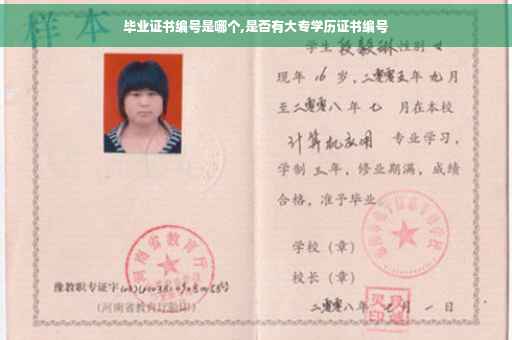 毕业证书编号是哪个,是否有大专学历证书编号
样本
学生段毅琳性别女
现年16岁，二零零五年九月
至二零零八年七月在本校
计算机应用 专业学习，
学制三年，修业期满，成绩
合格，准予毕业
学校（章）
校长（章）
二零零八年七月一日
河南省教育厅
豫教职专证字
(河南省教育厅验印)